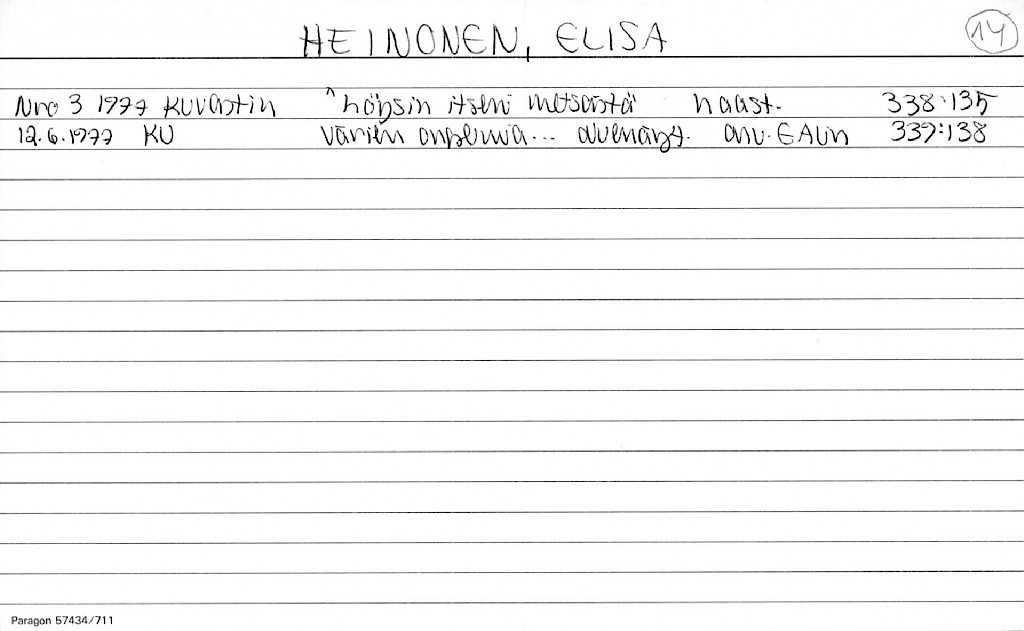 HEINONEN, ELISA
14
Nro 3 1977 Kuvastin "Löysin itseni metsästä haast. 338:135
12.6.1977 KU värien ... arv. EAUn 339:138
Paragon 57434/711